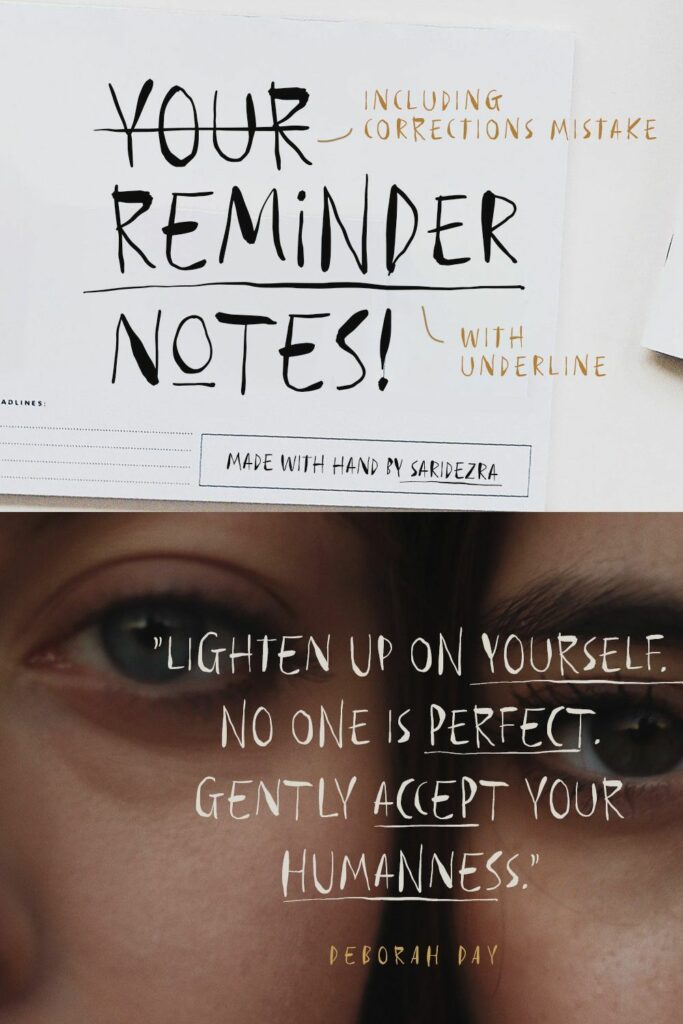 YOUR
INCLUDING
CORRECTIONS MISTAKE
REMINDER
NOTES!
WITH
UNDERLINE
ADLINES:
MADE WITH HAND BY SARIDEZRA
"LIGHTEN UP ON YOURSELF.
NO ONE IS PERFECT.
GENTLY ACCEPT YOUR
HUMANNESS."
DEBORAH DAY